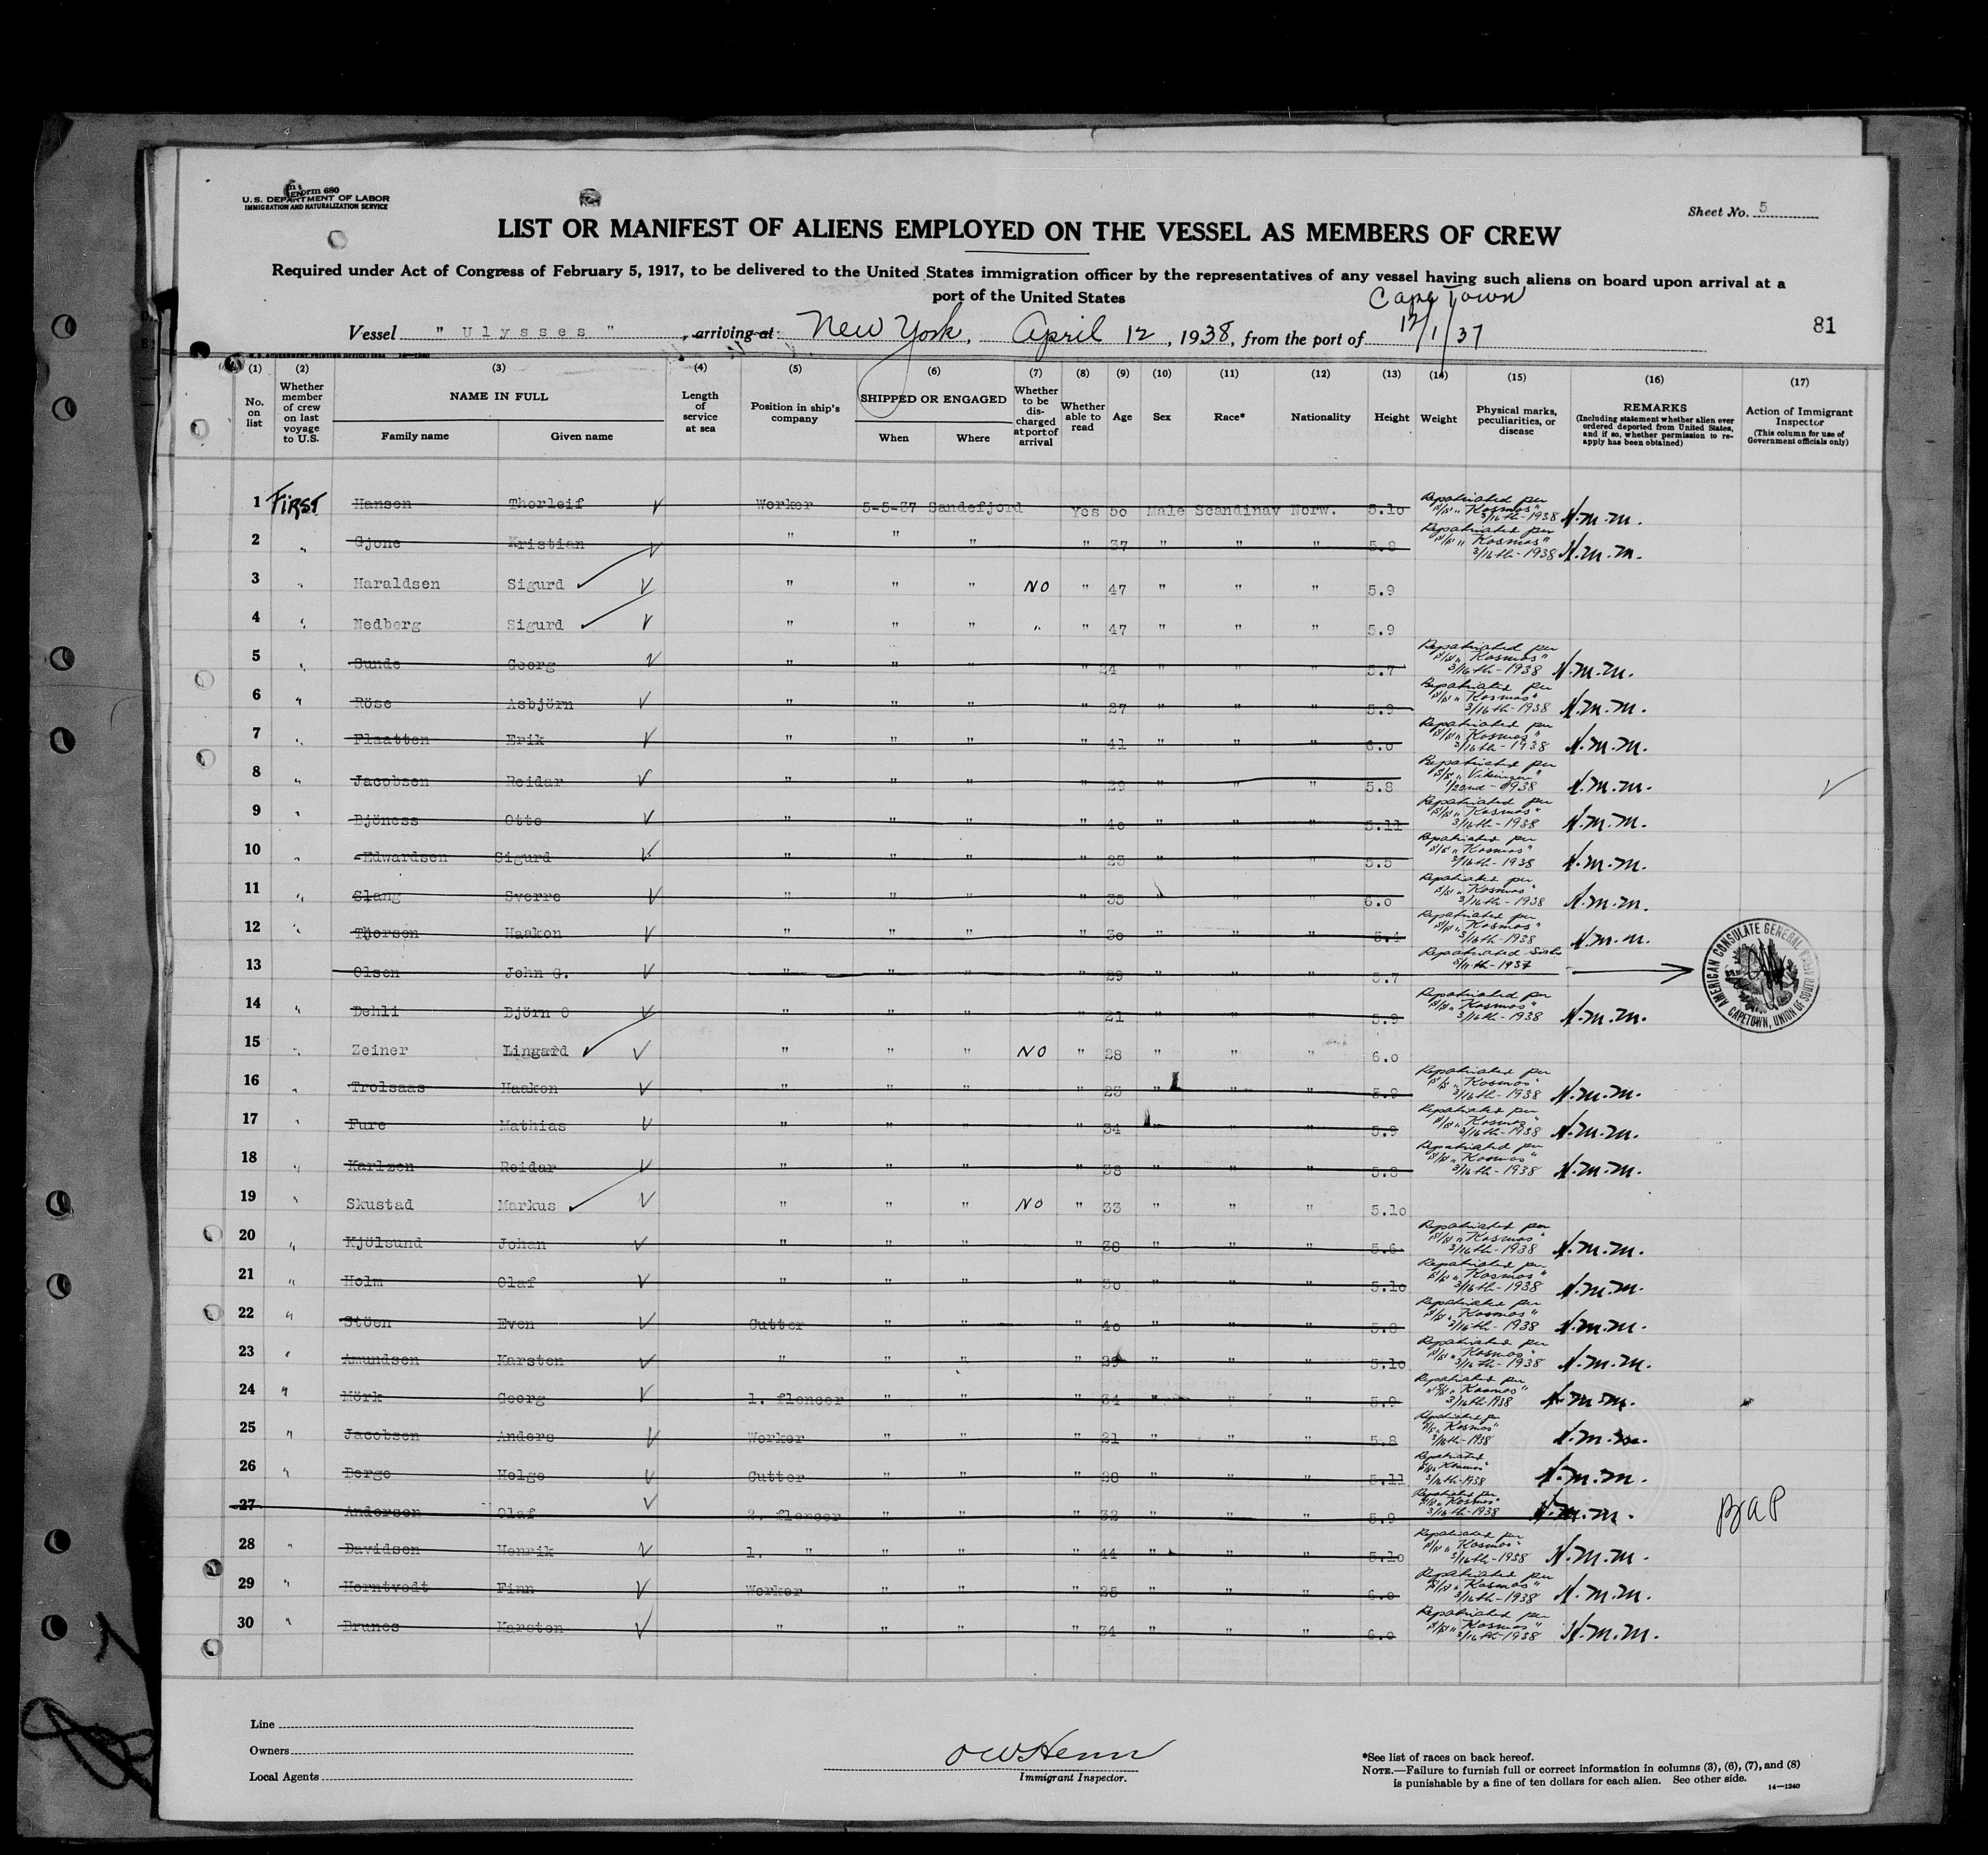 Form 680
U. S. DEPARTMENT OF LABOR
IMMIGRATION AND NATURALIZATION SERVICE
Sheet No. 5
LIST OR MANIFEST OF ALIENS EMPLOYED ON THE VESSEL AS MEMBERS OF CREW
Required under Act of Congress of February 5, 1917, to be delivered to the United States immigration officer by the representatives of any vessel having such aliens on board upon arrival at a
port of the United States
Cape Town
Vessel " Ulysses " , arriving at New York, April 12, 1938, from the port of 12/1/37
81
(1) (2) (3) (4) (5) (6) (7) (8) (9) (10) (11) (12) (13) (14) (15) (16) (17)
No. on list
Whether member of crew on last voyage to U.S.
NAME IN FULL
Family name Given name
Length of service at sea
Position in ship's company
SHIPPED OR ENGAGED
When Where
Whether to be discharged at port of arrival
Whether able to read
Age
Sex
Race*
Nationality
Height
Weight
Physical marks, peculiarities, or disease
REMARKS
(Including statement whether alien ever ordered deported from United States, and if so, whether permission to re-apply has been obtained)
Action of Immigrant Inspector
(This column for use of Government officials only)
1 FIRST Hansen Thorleif V Worker 5-5-37 Sandefjord Yes 50 Male Scandinav Norw. 5.10 Repatriated per S/S "Kosmos" 3/16th-1938 N.M.M.
2 " Gjone Kristian V " " " " 37 " " " 5.8 Repatriated per S/S "Kosmos" 3/16th-1938 N.M.M.
3 " Haraldsen Sigurd V " " " NO " 47 " " " 5.9
4 " Nedberg Sigurd V " " " " " 47 " " " 5.9
5 " Sunde Georg V " " " " 24 " " 5.7 Repatriated per S/S "Kosmos" 3/16th-1938 N.M.M.
6 " Röse Asbjörn V " " " " 27 " " " 5.9 Repatriated per S/S "Kosmos" 3/16th-1938 N.M.M.
7 " Flaatten Erik V " " " " 41 " " " 6.0 Repatriated per S/S "Kosmos" 3/16th-1938 N.M.M.
8 " Jacobsen Reidar V " " " " 29 " " " 5.8 Repatriated per S/S "Vikingen" 1/22nd-1938 N.M.M. V
9 " Bjöness Otto V " " " " 40 " " " 5.11 Repatriated per S/S "Kosmos" 3/16th-1938 N.M.M.
10 " Edwardsen Sigurd V " " " " 23 " " " 5.5 Repatriated per S/S "Kosmos" 3/16th-1938 N.M.M.
11 " Slang Sverre V " " " " 35 " " " 6.0 Repatriated per S/S "Kosmos" 3/16th-1938 N.M.M.
12 " Tjorsen Haakon V " " " " 30 " " " 5.4 Repatriated per S/S "Kosmos" 3/16th-1938 N.M.M.
13 Olsen John G. V " " " " 29 " " " 5.7 Repatriated 1937
AMERICAN CONSULATE GENERAL CAPETOWN, UNION OF SOUTH AFRICA
14 " Dehli Björn O V " " " " 21 " " " 5.9 Repatriated per S/S "Kosmos" 3/16th-1938 N.M.M.
15 " Zeiner Lingard V " " " NO " 28 " " " 6.0
16 " Trolsaas Haakon V " " " " 23 " " " 5.9 Repatriated per S/S "Kosmos" 3/16th-1938 N.M.M.
17 " Fure Mathias V " " " " 34 " " " 5.9 Repatriated per S/S "Kosmos" 3/16th-1938 N.M.M.
18 " Karlzen Reidar V " " " " 38 " " " 5.8 Repatriated per S/S "Kosmos" 3/16th-1938 N.M.M.
19 " Skustad Markus V " " " NO " 33 " " " 5.10
20 " Kjölsund Johan V " " " " 38 " " " 5.6 Repatriated per S/S "Kosmos" 3/16th-1938 N.M.M.
21 " Holm Olaf V " " " " 30 " " " 5.10 Repatriated per S/S "Kosmos" 3/16th-1938 N.M.M.
22 " Stöen Even V Cutter " " " 40 " " " 5.8 Repatriated per S/S "Kosmos" 3/16th-1938 N.M.M.
23 " Amundsen Karsten V " " " " 29 " " " 5.10 Repatriated per S/S "Kosmos" 3/16th-1938 N.M.M.
24 " Mörk Georg V 1. flencer " " " 34 " " " 5.9 Repatriated per S/S "Kosmos" 3/16th-1938 N.M.M.
25 " Jacobsen Anders V Worker " " " 21 " " " 5.8 Repatriated per S/S "Kosmos" 3/16th-1938 N.M.M.
26 " Berge Helge V Cutter " " " 28 " " " 5.11 Repatriated S/S "Kosmos" 3/16th-1938 N.M.M.
27 Andersen Olaf V 2. flencer " " " 32 " " " 5.9 Repatriated per S/S "Kosmos" 3/16th-1938 N.M.M. BaP
28 " Davidsen Henrik V 1. " " " " 44 " " " 5.10 Repatriated per S/S "Kosmos" 3/16th-1938 N.M.M.
29 " Horntvedt Finn V Worker " " " 25 " " " 6.0 Repatriated per S/S "Kosmos" 3/16th-1938 N.M.M.
30 " Brunes Karsten V " " " " 34 " " " 6.0 Repatriated per S/S "Kosmos" 3/16th-1938 N.M.M.
Line
Owners
Local Agents
OWHenn
Immigrant Inspector.
*See list of races on back hereof.
NOTE.—Failure to furnish full or correct information in columns (3), (6), (7), and (8)
is punishable by a fine of ten dollars for each alien. See other side.
14—1240